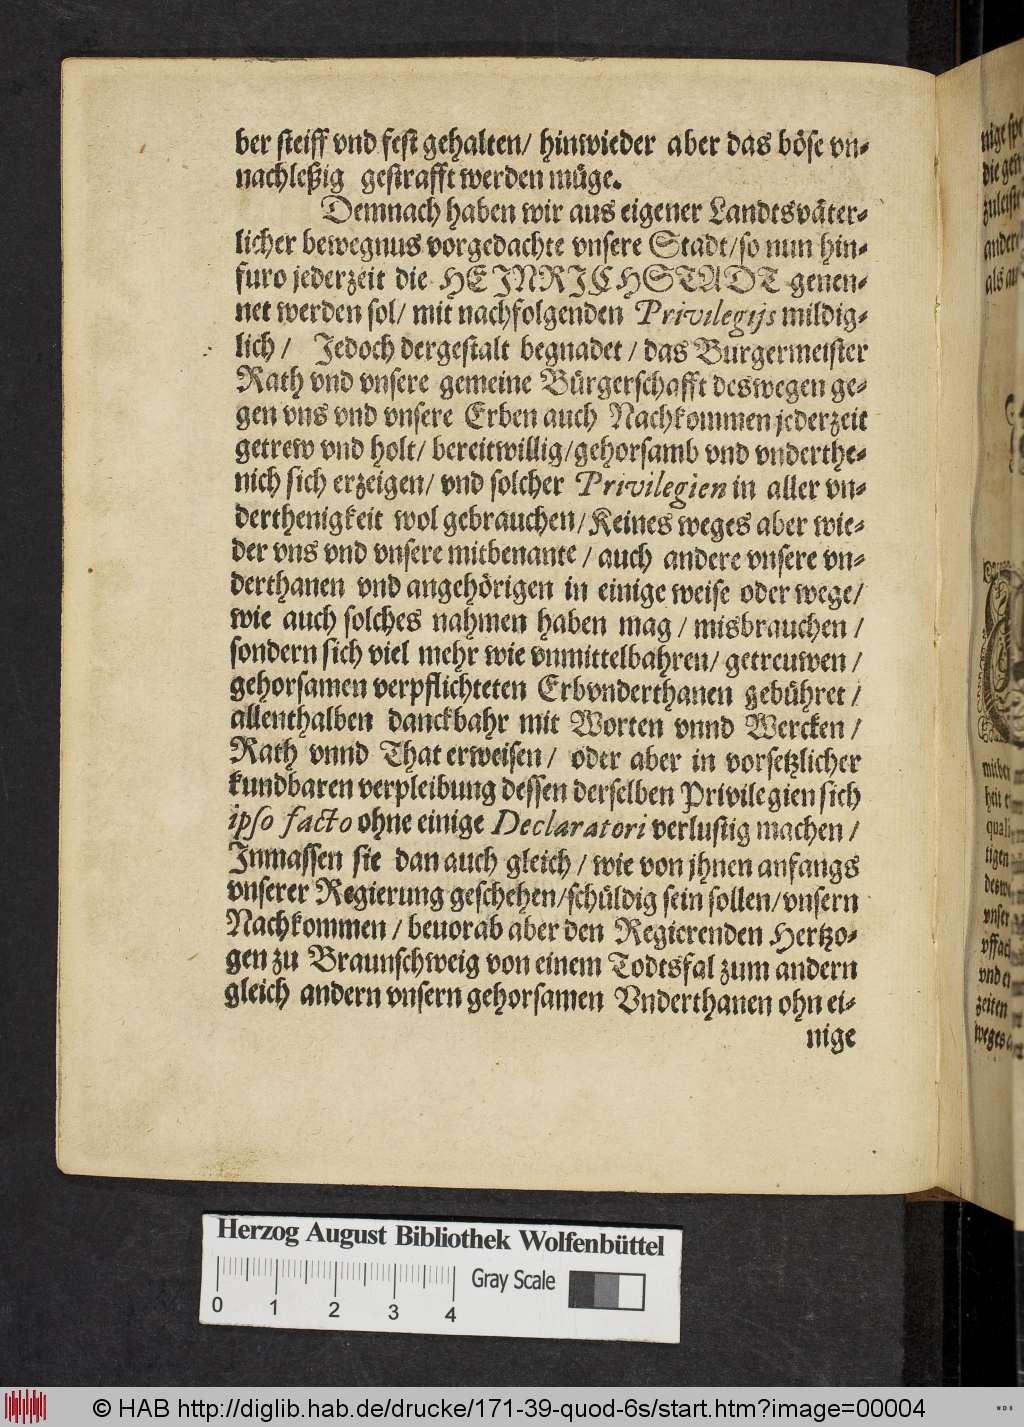 ber steiff vnd fest gehalten/ hinwieder aber das böse vn-
nachleßig gestrafft werden müge.
Demnach haben wir aus eigener Landtsväter-
licher bewegnus vorgedachte vnsere Stadt/so nun hin-
furo jederzeit die HEINRICHSTADT genen-
net werden sol/ mit nachfolgenden Privilegijs mildig-
lich / Jedoch dergestalt begnadet / das Burgermeister
Rath vnd vnsere gemeine Bürgerschafft deswegen ge-
gen vns vnd vnsere Erben auch Nachkommen jederzeit
getrew vnd holt/ bereitwillig/gehorsamb vnd vnderthe-
nich sich erzeigen/ vnd solcher Privilegien in aller vn-
derthenigkeit wol gebrauchen/Keines weges aber wie-
der vns vnd vnsere mitbenante / auch andere vnsere vn-
derthanen vnd angehörigen in einige weise oder wege/
wie auch solches nahmen haben mag / misbrauchen /
sondern sich viel mehr wie vnmittelbahren/ getreuwen /
gehorsamen verpflichteten Erbvnderthanen gebühret /
allenthalben danckbahr mit Worten vnnd Wercken /
Rath vnnd That erweisen / oder aber in vorsetzlicher
kundbaren verpleibung dessen derselben Privilegien sich
ipso facto ohne einige Declaratori verlustig machen /
Inmassen sie dan auch gleich / wie von jhnen anfangs
vnserer Regierung geschehen/schüldig sein sollen/vnsern
Nachkommen / beuorab aber den Regierenden Hertzo-
gen zu Braunschweig von einem Todtsfal zum andern
gleich andern vnsern gehorsamen Vnderthanen ohn ei-
nige
als
mitber
quali
tigen
vnser
vnd ei
zeiten
weges
Herzog August Bibliothek Wolfenbüttel
Gray Scale
0 1 2 3 4
© HAB http://diglib.hab.de/drucke/171-39-quod-6s/start.htm?image=00004